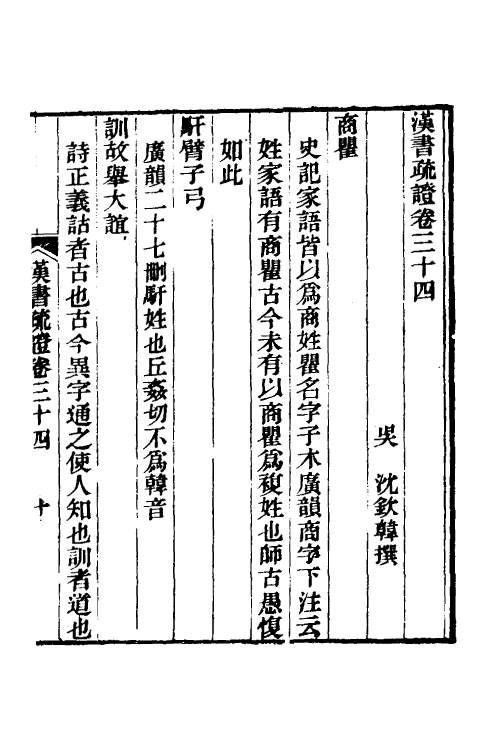 漢書疏證卷三十四
吳　沈欽韓撰
商瞿
史記家語皆以爲商姓瞿名字子木廣韻商字下注云
姓家語有商瞿古今未有以商瞿爲複姓也師古愚愎
如此
馯臂子弓
廣韻二十七刪馯姓也丘姦切不爲韓音
訓故舉大誼
詩正義詁者古也古今異字通之使人知也訓者道也
漢書疏證卷三十四　十